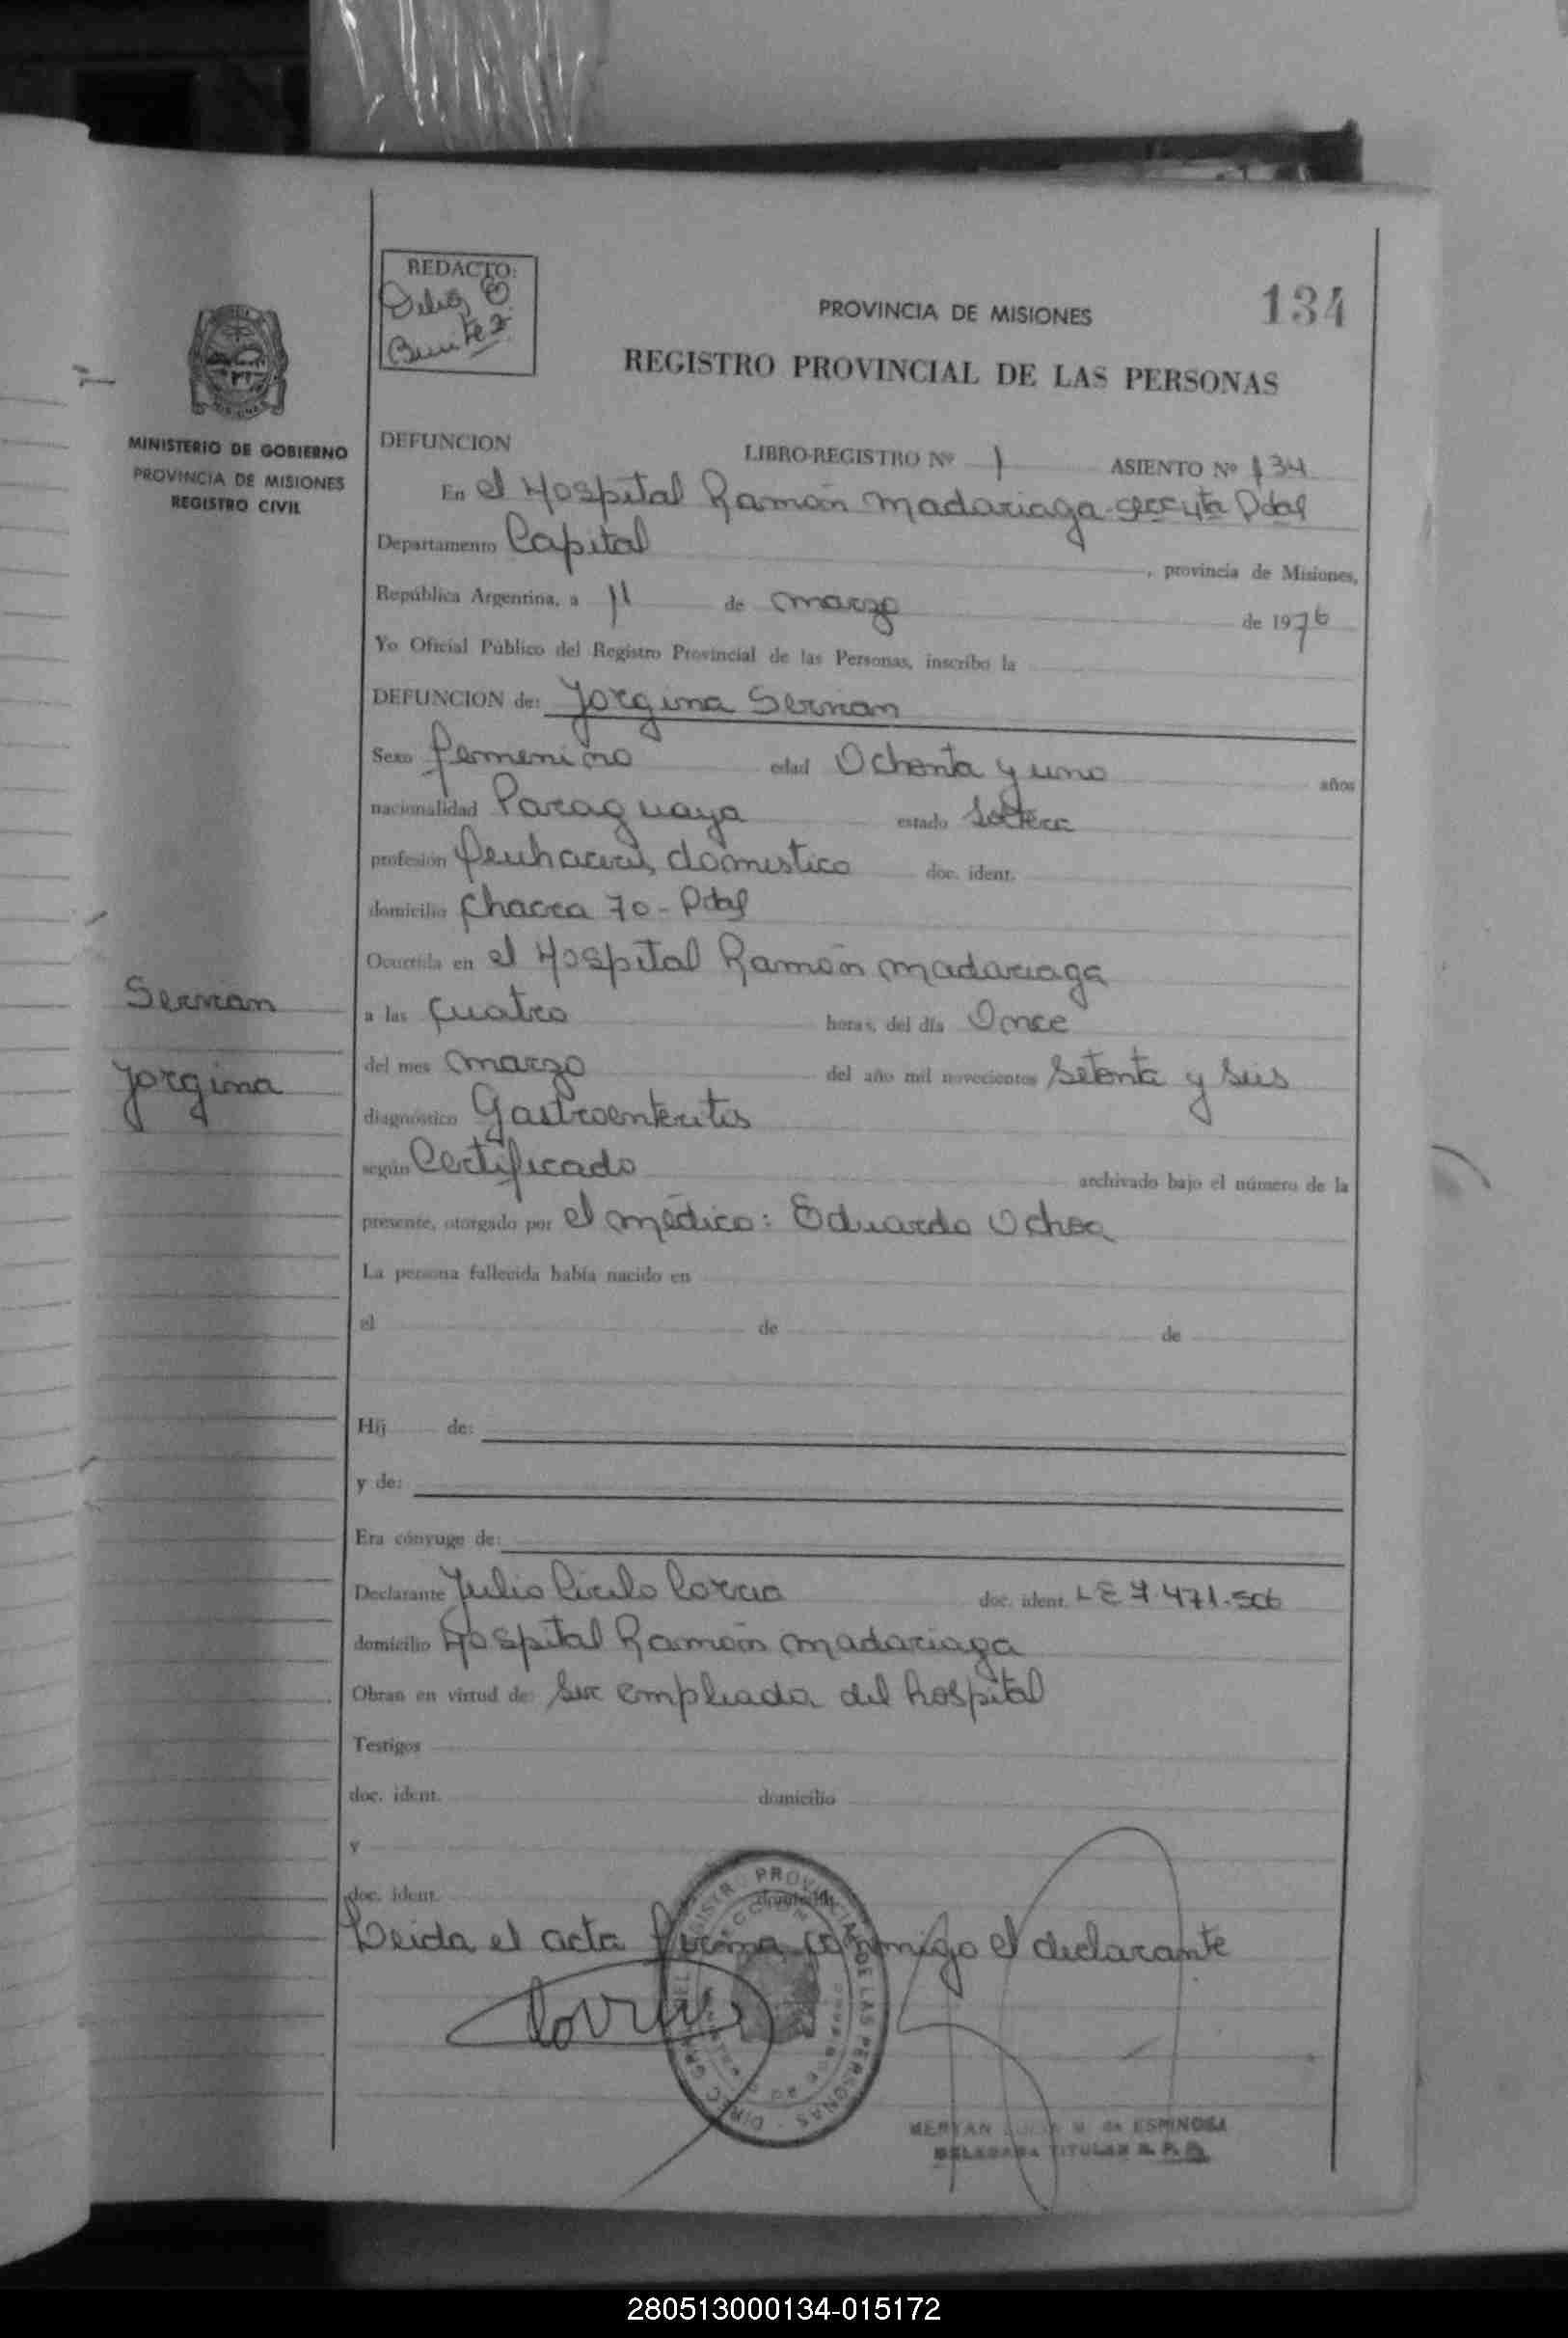 REDACTO:
Delia
134
PROVINCIA DE MISIONES
REGISTRO PROVINCIAL DE LAS PERSONAS
MINISTERIO DE GOBIERNO
PROVINCIA DE MISIONES
REGISTRO CIVIL
DEFUNCION LIBRO-REGISTRO Nº 1 ASIENTO Nº 134
En el Hospital Ramón Madariaga Pdas
Departamento Capital, provincia de Misiones,
República Argentina, a 11 de marzo de 1976
Yo Oficial Público del Registro Provincial de las Personas, inscribo la
DEFUNCION de: Jorgina Servian
Sexo femenino edad Ochenta y uno años
nacionalidad Paraguaya estado Soltera
profesión domestico doc. ident.
domicilio Chacra 70 - Pdas
Ocurrida en el Hospital Ramón Madariaga
Servian
a las cuatro horas, del día Once
Jorgina
del mes marzo del año mil novecientos setenta y seis
diagnóstico Gastroenteritis
según Certificado archivado bajo el número de la
presente, otorgado por el médico: Eduardo Ochoa
La persona fallecida había nacido en
el de de
Hij de:
y de:
Era cónyuge de:
Declarante Julio Cirilo doc. ident. LE 7.471.506
domicilio Hospital Ramón Madariaga
Obran en virtud de: ser empleada del hospital
Testigos
doc. ident. domicilio
y
doc. ident. domicilio
Leida el acta firma conmigo el declarante
DIREC. GRAL. DEL REGISTRO PROVINCIAL DE LAS PERSONAS
de ESPINOSA
DELEGADA TITULAR R. P. P.
280513000134-015172